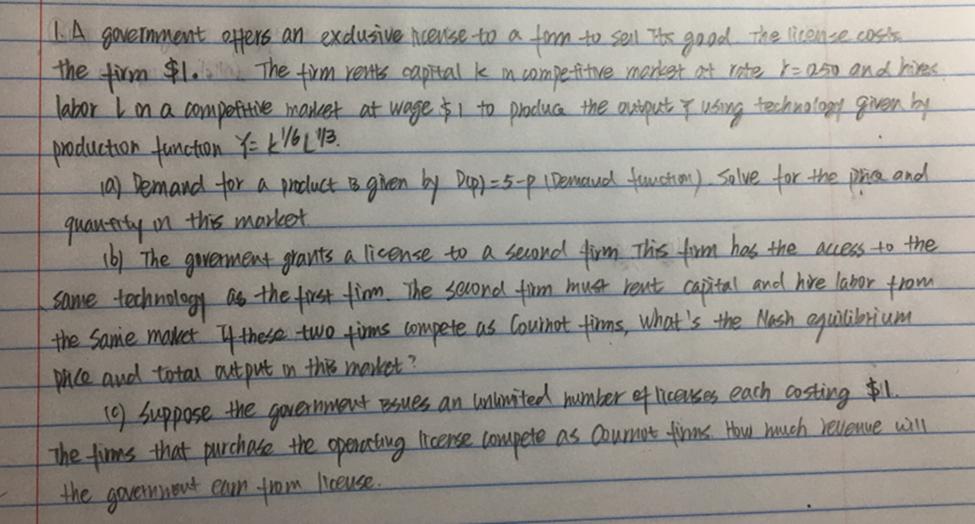 1. A government offers an exclusive license to a firm to sell its good. The license costs
the firm $1. The firm rents capital k in competitive market at rate r=0.50 and hires
labor L in a competitive market at wage $1 to produce the output Y using technology given by
production function Y= k^1/6 L^1/3.
(a) Demand for a product is given by D(p)=5-p (Demand function). Solve for the price and
quantity in this market.
(b) The goverment grants a license to a second firm. This firm has the access to the
same technology as the first firm. The second firm must rent capital and hire labor from
the same market. If these two firms compete as Cournot firms, what's the Nash equilibrium
price and total output in this market?
(c) Suppose the government issues an unlimited number of licenses each costing $1.
The firms that purchase the operating license compete as Cournot firms. How much revenue will
the government earn from license.